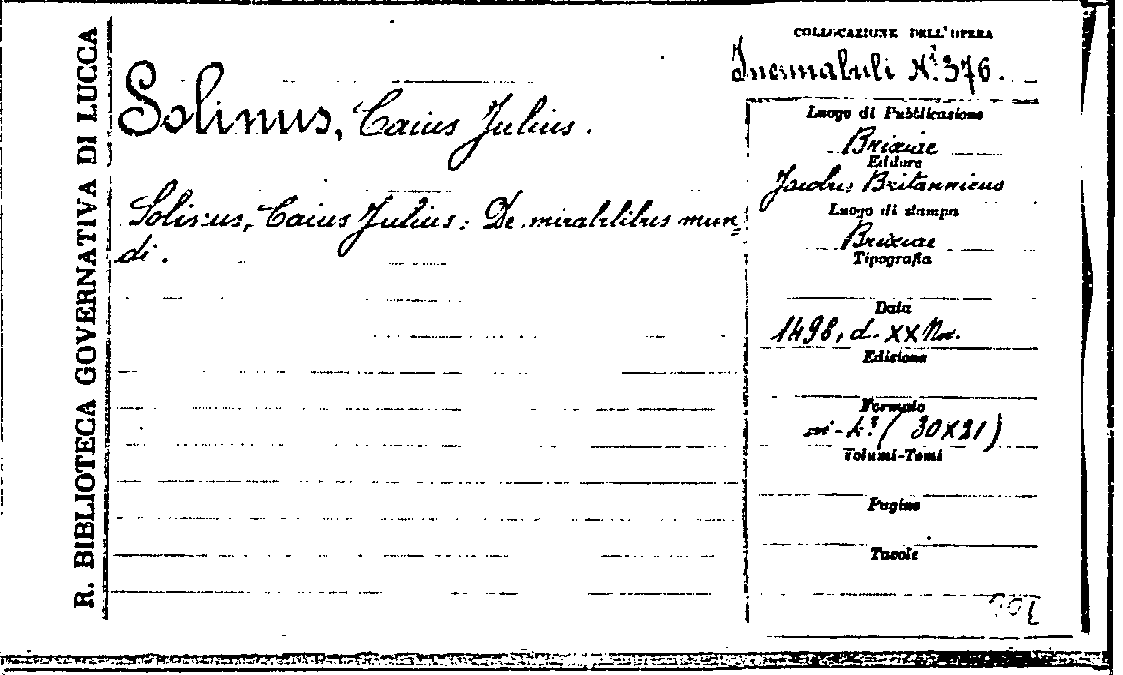 R. BIBLIOTECA GOVERNATIVA DI LUCCA
COLLOCAZIONE DELL'OPERA
Incunabuli N.i 376.
Solinus, Caius Julius.
Solinus, Caius Julius: De mirabilibus mun-
di.
Luogo di Pubblicazione
Brixiae
Editore
Jacobus Britannicus
Luogo di stampa
Brixiae
Tipografia
Data
1498, d. XX Nov.
Edizione
Formato
in-4.º (30X21)
Volumi-Tomi
Pagine
Tavole